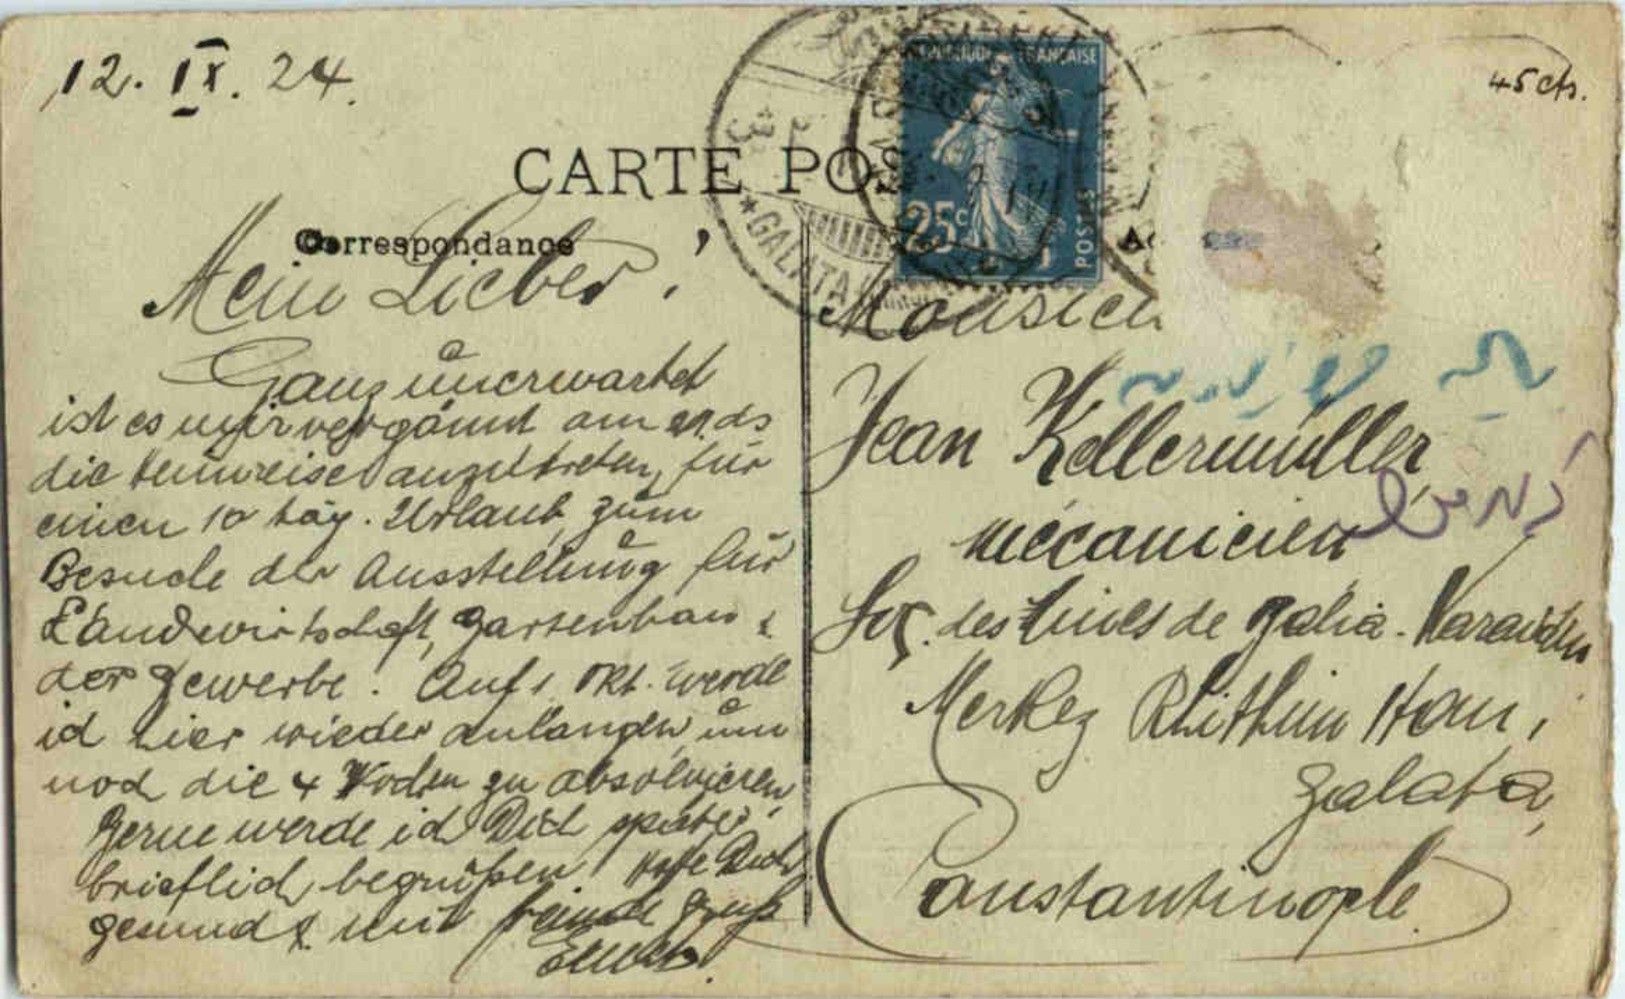 12. IX. 24.
45 cts.
CARTE POS
Correspondance
RÉPUBLIQUE FRANÇAISE
25c
POSTES
3
* GALATA
Mein Lieber,
Ganz unerwartet
ist es mir vergönnt am 21. ds
die Heimreise anzutreten, für
einen 10 täg. Urlaub, zum
Besuche der Ausstellung für
Landwirtschaft, Gartenbau &
der Gewerbe. Auf 1 Okt. werde
ich hier wieder anlangen, um
noch die 4 Wochen zu absolvieren
Gerne werde ich Dich später
brieflich begrüßen. Halte Dich
gesund & mit Gruß
Monsieu
Jean Kellermüller,
mécanicien
Soc. des Mines de Balia-Karaidin
Merkez Rhithim Han,
Galata,
Constantinople.